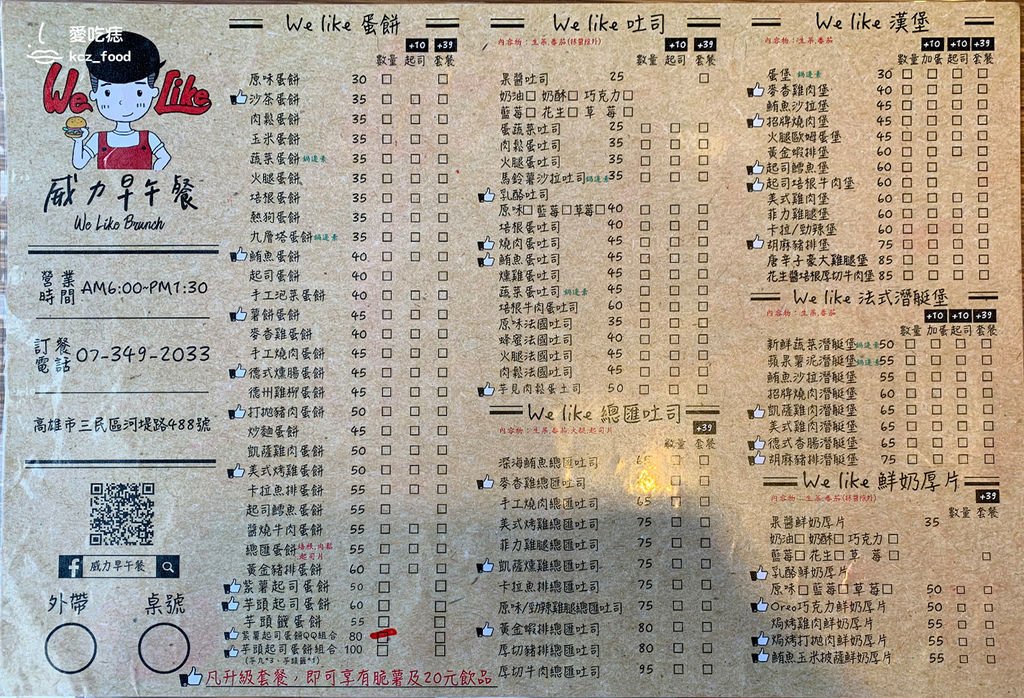 愛吃痣
kcz_food
We Like
威力早午餐
We Like Brunch
營業時間 AM6:00~PM1:30
訂餐電話 07-349-2033
高雄市三民區河堤路488號
威力早午餐
外帶 桌號
We like 蛋餅
+10 +39
數量 起司 套餐
原味蛋餅 30
沙茶蛋餅 35
肉鬆蛋餅 35
玉米蛋餅 35
蔬菜蛋餅 鍋邊素 35
火腿蛋餅 35
培根蛋餅 35
熱狗蛋餅 35
九層塔蛋餅 鍋邊素 35
鮪魚蛋餅 40
起司蛋餅 40
手工泡菜蛋餅 40
薯餅蛋餅 45
麥香雞蛋餅 40
手工燒肉蛋餅 45
德式燻腸蛋餅 45
德州雞柳蛋餅 45
打拋豬肉蛋餅 50
炒麵蛋餅 45
凱薩雞肉蛋餅 50
美式烤雞蛋餅 50
卡拉魚排蛋餅 50
起司鱈魚蛋餅 50
醬燒牛肉蛋餅 55
總匯蛋餅 培根,肉鬆 起司片 55
黃金豬排蛋餅 60
紫薯起司蛋餅 50
芋頭起司蛋餅 60
芋頭饊蛋餅 55
紫薯起司蛋餅QQ組合 80
芋頭起司蛋餅組合 100
凡升級套餐，即可享有脆薯及20元飲品
We like 吐司
內容物：生菜,番茄(抹醬除外)
+10 +39
數量 起司 套餐
果醬吐司 25
奶油□ 奶酥□ 巧克力□
藍莓□ 花生□ 草莓□
蛋蔬菜吐司 25
肉鬆蛋吐司 35
火腿蛋吐司 35
馬鈴薯沙拉吐司 鍋邊素 35
乳酪吐司
原味□ 藍莓□ 草莓□ 40
培根蛋吐司 40
燒肉蛋吐司 45
鮪魚蛋吐司 45
燻雞蛋吐司 45
蔬菜蛋吐司 鍋邊素 45
培根牛肉蛋吐司 60
原味法國吐司 35
蜂蜜法國吐司 40
火腿法國吐司 45
肉鬆法國吐司 45
芋見肉鬆蛋土司 50
We like 總匯吐司
內容物：生菜,番茄,火腿,起司片
+39
數量 套餐
深海鮪魚總匯吐司 65
麥香雞總匯吐司
手工燒肉總匯吐司 65
美式烤雞總匯吐司 75
菲力雞腿總匯吐司 75
凱薩燻雞總匯吐司 75
卡拉魚排總匯吐司 75
原味/勁辣雞腿總匯吐司 75
黃金蝦排總匯吐司 80
厚切豬排總匯吐司 80
厚切牛肉總匯吐司 95
We like 漢堡
內容物：生菜,番茄
+10 +10 +39
數量 加蛋 起司 套餐
蛋堡 鍋邊素 30
麥香雞肉堡 40
鮪魚沙拉堡 45
招牌燒肉堡 45
火腿歐姆蛋堡 45
黃金蝦排堡 60
起司鱈魚堡 60
起司培根牛肉堡 60
美式雞肉堡 60
菲力雞腿堡 60
卡拉/勁辣堡 60
胡麻豬排堡 75
唐辛子豪大雞腿堡 85
花生醬培根厚切牛肉堡 85
We like 法式潛艇堡
內容物：生菜,番茄
+10 +10 +39
數量 加蛋 起司 套餐
新鮮蔬菜潛艇堡 鍋邊素 50
蘋果薯泥潛艇堡 鍋邊素 55
鮪魚沙拉潛艇堡 55
招牌燒肉潛艇堡 60
凱薩雞肉潛艇堡 65
美式雞肉潛艇堡 65
德式香腸潛艇堡 65
胡麻豬排潛艇堡 75
We like 鮮奶厚片
內容物：生菜,番茄(抹醬除外)
+39
數量 套餐
果醬鮮奶厚片 35
奶油□ 奶酥□ 巧克力□
藍莓□ 花生□ 草莓□
乳酪鮮奶厚片
原味□ 藍莓□ 草莓□ 50
Oreo巧克力鮮奶厚片 50
焗烤雞肉鮮奶厚片 55
焗烤打拋肉鮮奶厚片 55
鮪魚玉米披薩鮮奶厚片 55